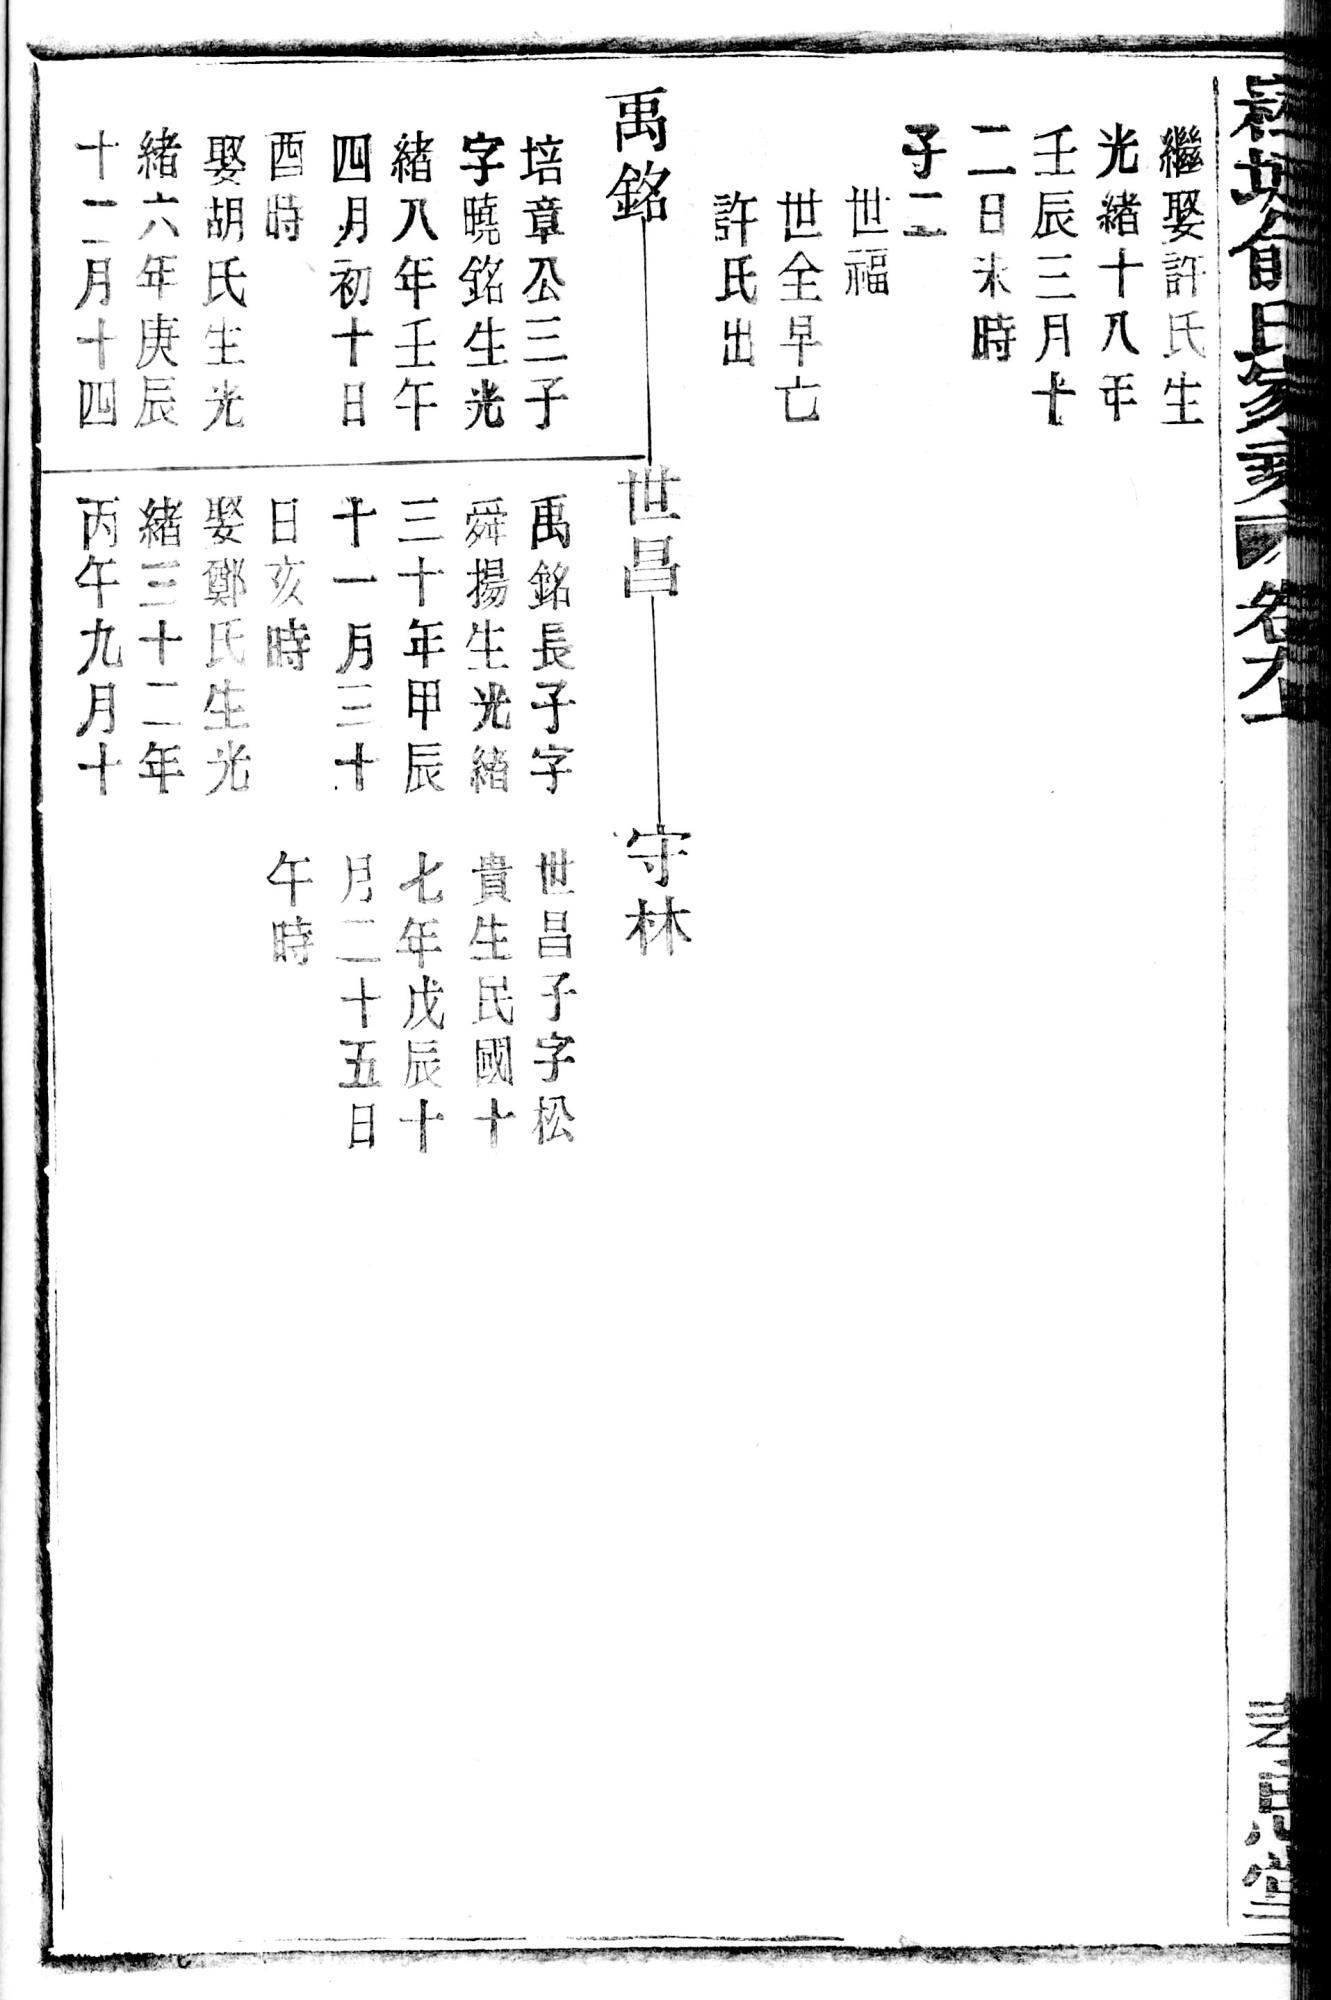 俞氏
卷九
孝思堂
繼娶許氏生
光緒十八年
壬辰三月十
二日未時
子二
世福
世全早亡
許氏出
禹銘
培章公三子
字曉銘生光
緒八年壬午
四月初十日
酉時
娶胡氏生光
緒六年庚辰
十二月十四
世昌
禹銘長子字
舜揚生光緒
三十年甲辰
十一月三十
日亥時
娶鄭氏生光
緒三十二年
丙午九月十
守林
世昌子字松
貴生民國十
七年戊辰十
月二十五日
午時